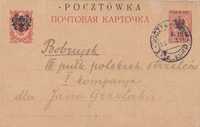 · POCZTÓWKA ·
ПОЧТОВАЯ КАРТОЧКА
Bobrujsk
III pułk polskich strzelców
I kompanja
dla Jana Grzelaka